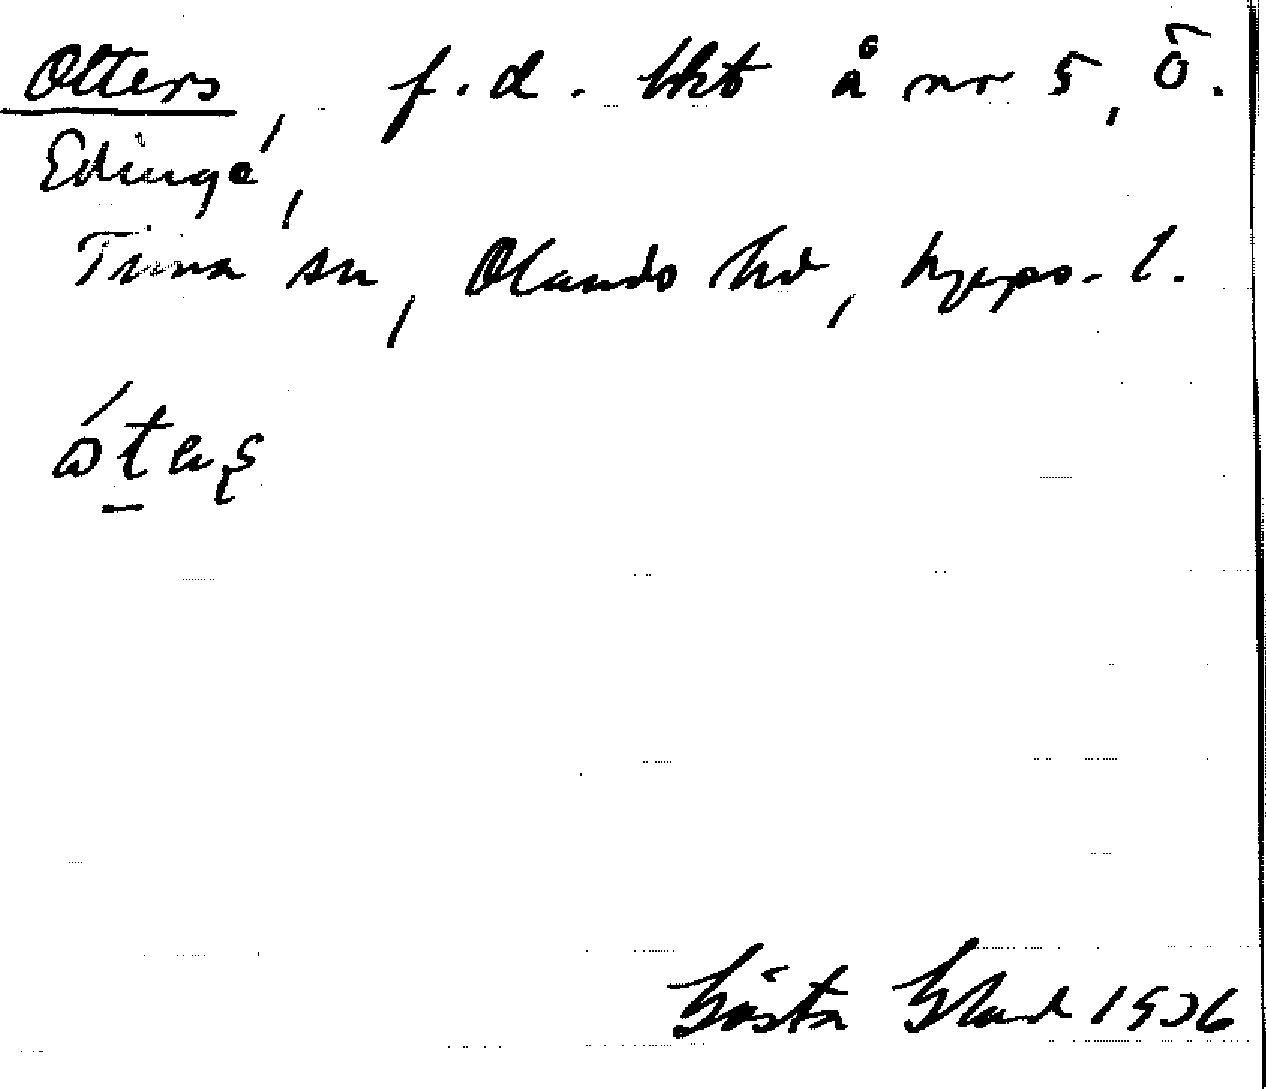 Otters, f.d. bht å nr 5, Ö.
Edinge,
Tuna sn, Olands hd, Upps. l.
Gösta Blad 1936